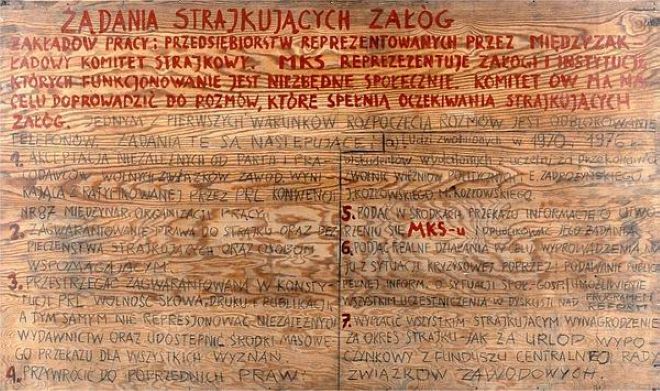 ŻĄDANIA STRAJKUJĄCYCH ZAŁÓG
ZAKŁADÓW PRACY i PRZEDSIĘBIORSTW REPREZENTOWANYCH PRZEZ MIĘDZYZAK-
ŁADOWY KOMITET STRAJKOWY. MKS REPREZENTUJE ZAŁOGI I INSTYTUCJE,
KTÓRYCH FUNKCJONOWANIE JEST NIEZBĘDNE SPOŁECZNIE. KOMITET ÓW MA NA
CELU DOPROWADZIĆ DO ROZMÓW, KTÓRE SPEŁNIĄ OCZEKIWANIA STRAJKUJĄCYCH
ZAŁÓG. JEDNYM Z PIERWSZYCH WARUNKÓW ROZPOCZĘCIA ROZMÓW JEST ODBLOKOWANIE
TELEFONÓW. ŻĄDANIA TE SĄ NASTĘPUJĄCE:
1. AKCEPTACJA NIEZALEŻNYCH OD PARTII I PRA-
CODAWCÓW WOLNYCH ZWIĄZKÓW ZAWOD. WYNI-
KAJĄCA Z RATYFIKOWANEJ PRZEZ PRL KONWENCJI
NR 87 MIĘDZYNAR. ORGANIZACJI PRACY.
2. ZAGWARANTOWANIE PRAWA DO STRAJKU ORAZ BEZ-
PIECZEŃSTWA STRAJKUJĄCYCH ORAZ OSOBOM
WSPOMAGAJĄCYM.
3. PRZESTRZEGAĆ ZAGWARANTOWANĄ W KONSTY-
TUCJI PRL WOLNOŚĆ SŁOWA, DRUKU i PUBLIKACJI,
A TYM SAMYM NIE REPRESJONOWAĆ NIEZALEŻNYCH
WYDAWNICTW ORAZ UDOSTĘPNIĆ ŚRODKI MASOWE-
GO PRZEKAZU DLA WSZYSTKICH WYZNAŃ.
4. PRZYWRÓCIĆ DO POPRZEDNICH PRAW:
a) Ludzi zwolnionych w 1970 i 1976 r.
studentów wydalonych z uczelni za przekonania
ZWOLNIĆ WIĘŹNIÓW POLITYCZNYCH E. ZADROŻYŃSKIEGO
J. KOZŁOWSKIEGO M. KOZŁOWSKIEGO
5. PODAĆ W ŚRODKACH PRZEKAZU INFORMACJĘ O UTWO-
RZENIU SIĘ MKS-u i OPUBLIKOWAĆ JEGO ŻĄDANIA
6. PODJĄĆ REALNE DZIAŁANIA W CELU WYPROWADZENIA
Z SYTUACJI KRYZYSOWEJ POPRZEZ: PODAWANIE PUBLICZ.
PEŁNEJ INFORM. O SYTUACJI SPOŁ-GOSP. UMOŻLIWIENIE
WSZYSTKIM UCZESTNICZENIA W DYSKUSJI NAD PROGRAMEM
REFORM
7. WYPŁACIĆ WSZYSTKIM STRAJKUJĄCYM WYNAGRODZENIE
ZA OKRES STRAJKU JAK ZA URLOP WYPO
CZYNKOWY Z FUNDUSZU CENTRALNEJ RADY
ZWIĄZKÓW ZAWODOWYCH.